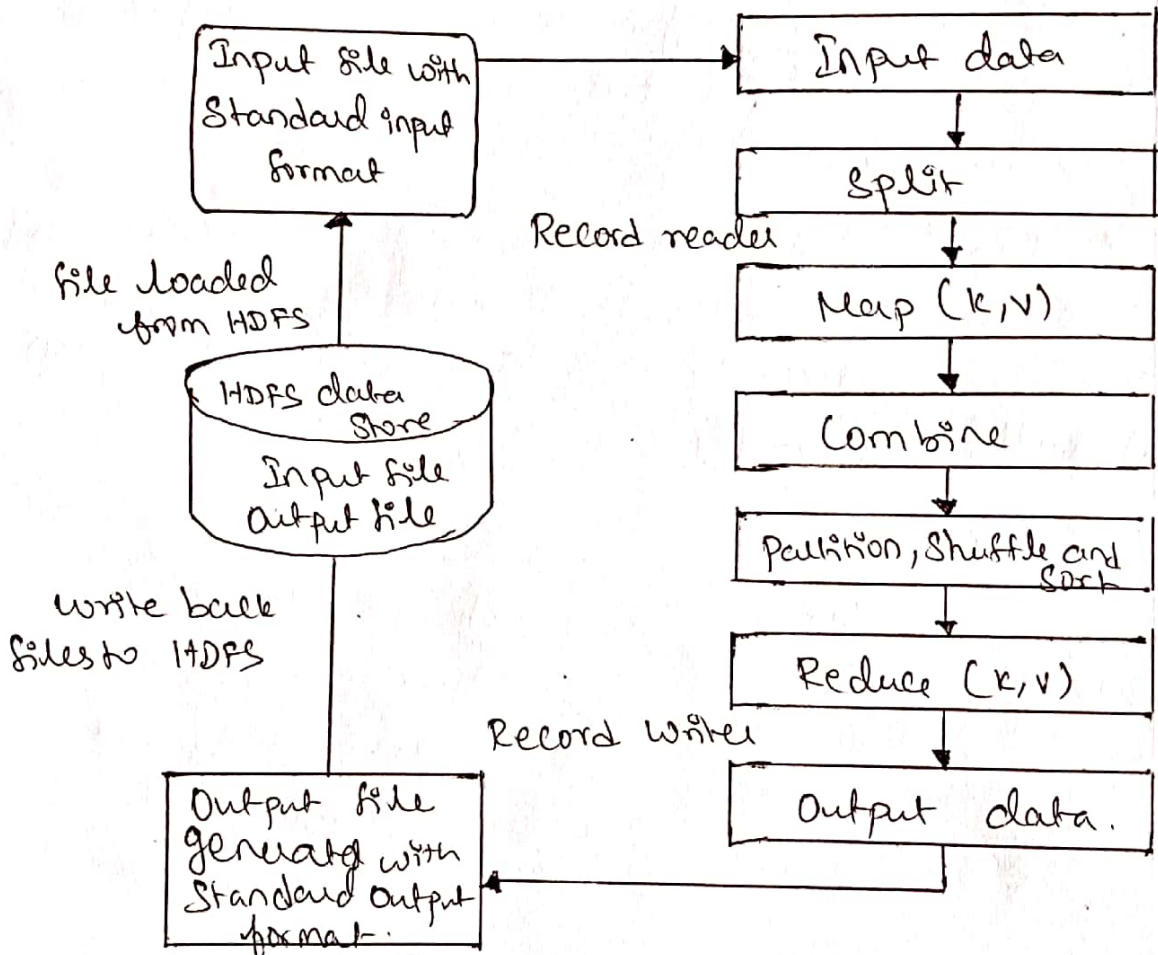 Input file with
Standard input
format
Input data
Split
Record reader
Map (k,v)
file loaded
from HDFS
HDFS data
Store
Input file
Output file
Combine
Partition, Shuffle and
Sort
write back
files to HDFS
Reduce (k,v)
Record Writer
Output file
generatd with
Standard Output
format.
Output data.